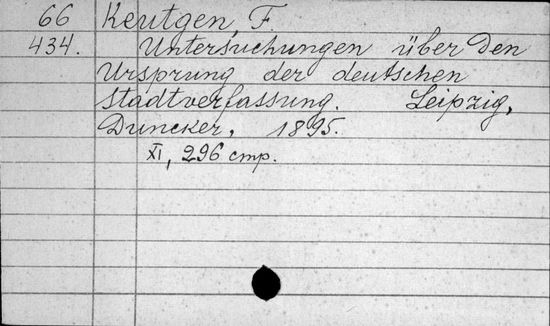 66 Keutgen, F
434. Untersuchungen über den
Ursprung der deutschen
Stadtverfassung. Leipzig,
Duncker, 1895.
XI, 296 стр.